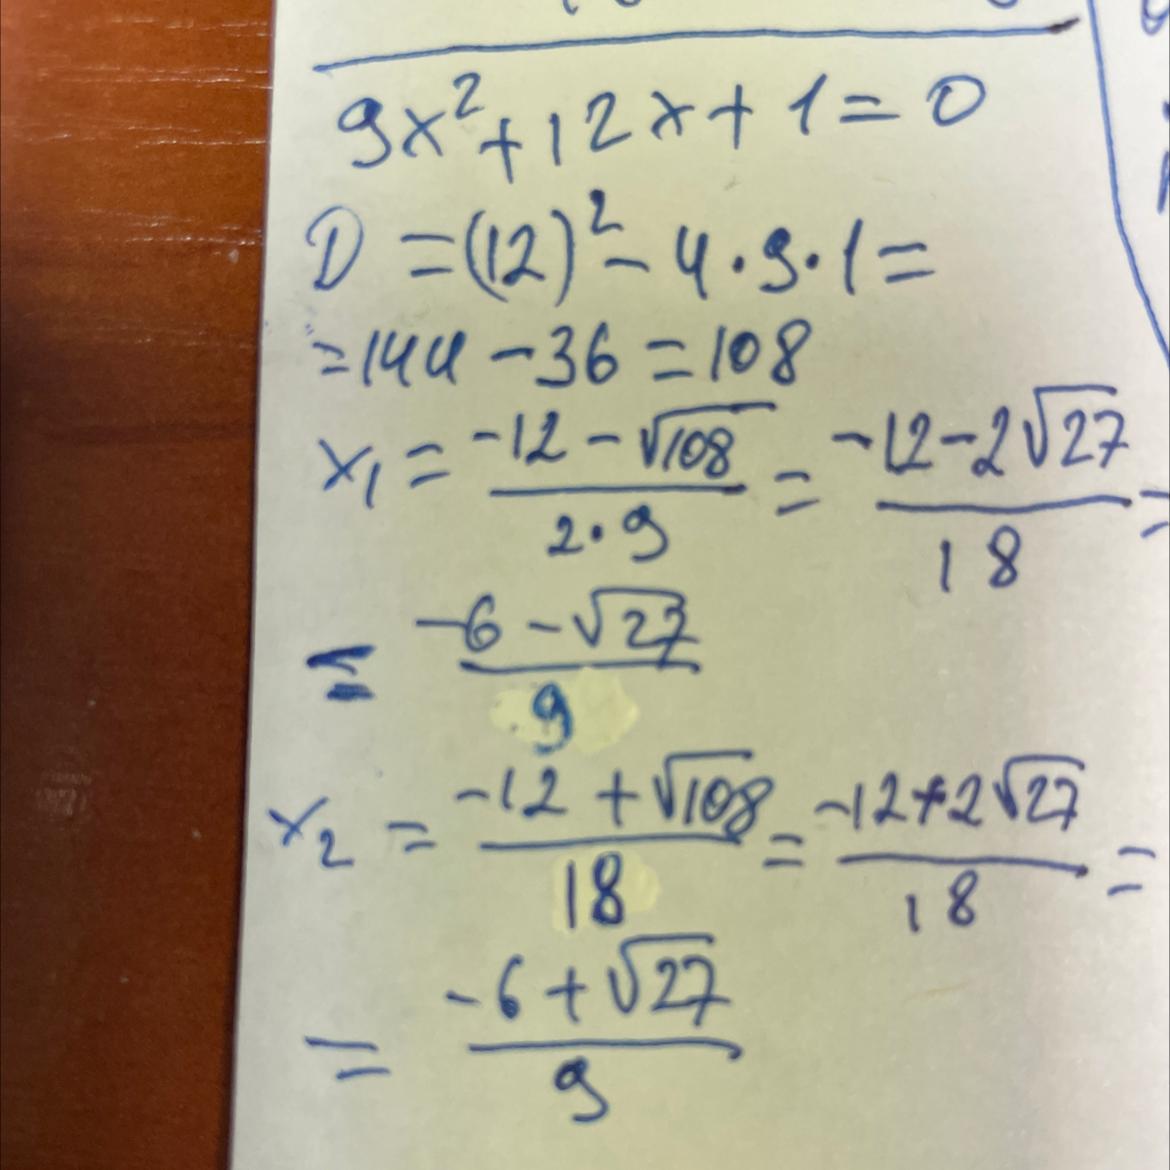 9x² + 12x + 1 = 0
D = (12)² - 4·9·1 =
= 144 - 36 = 108
x₁ = (-12 - √108)/(2·9) = (-12 - 2√27)/18 =
= (-6 - √27)/9
x₂ = (-12 + √108)/18 = (-12 + 2√27)/18 =
= (-6 + √27)/9